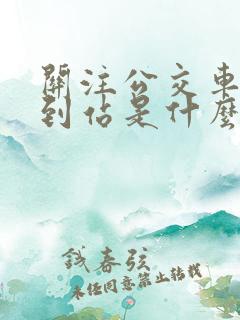 關注公交車
到佔是什麼
錢春弦
未經同意禁止轉載